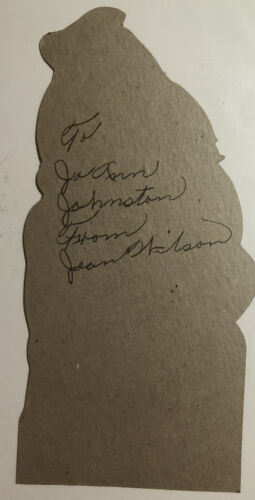 To
Jo Ann
Johnston
From
Jean Wilson